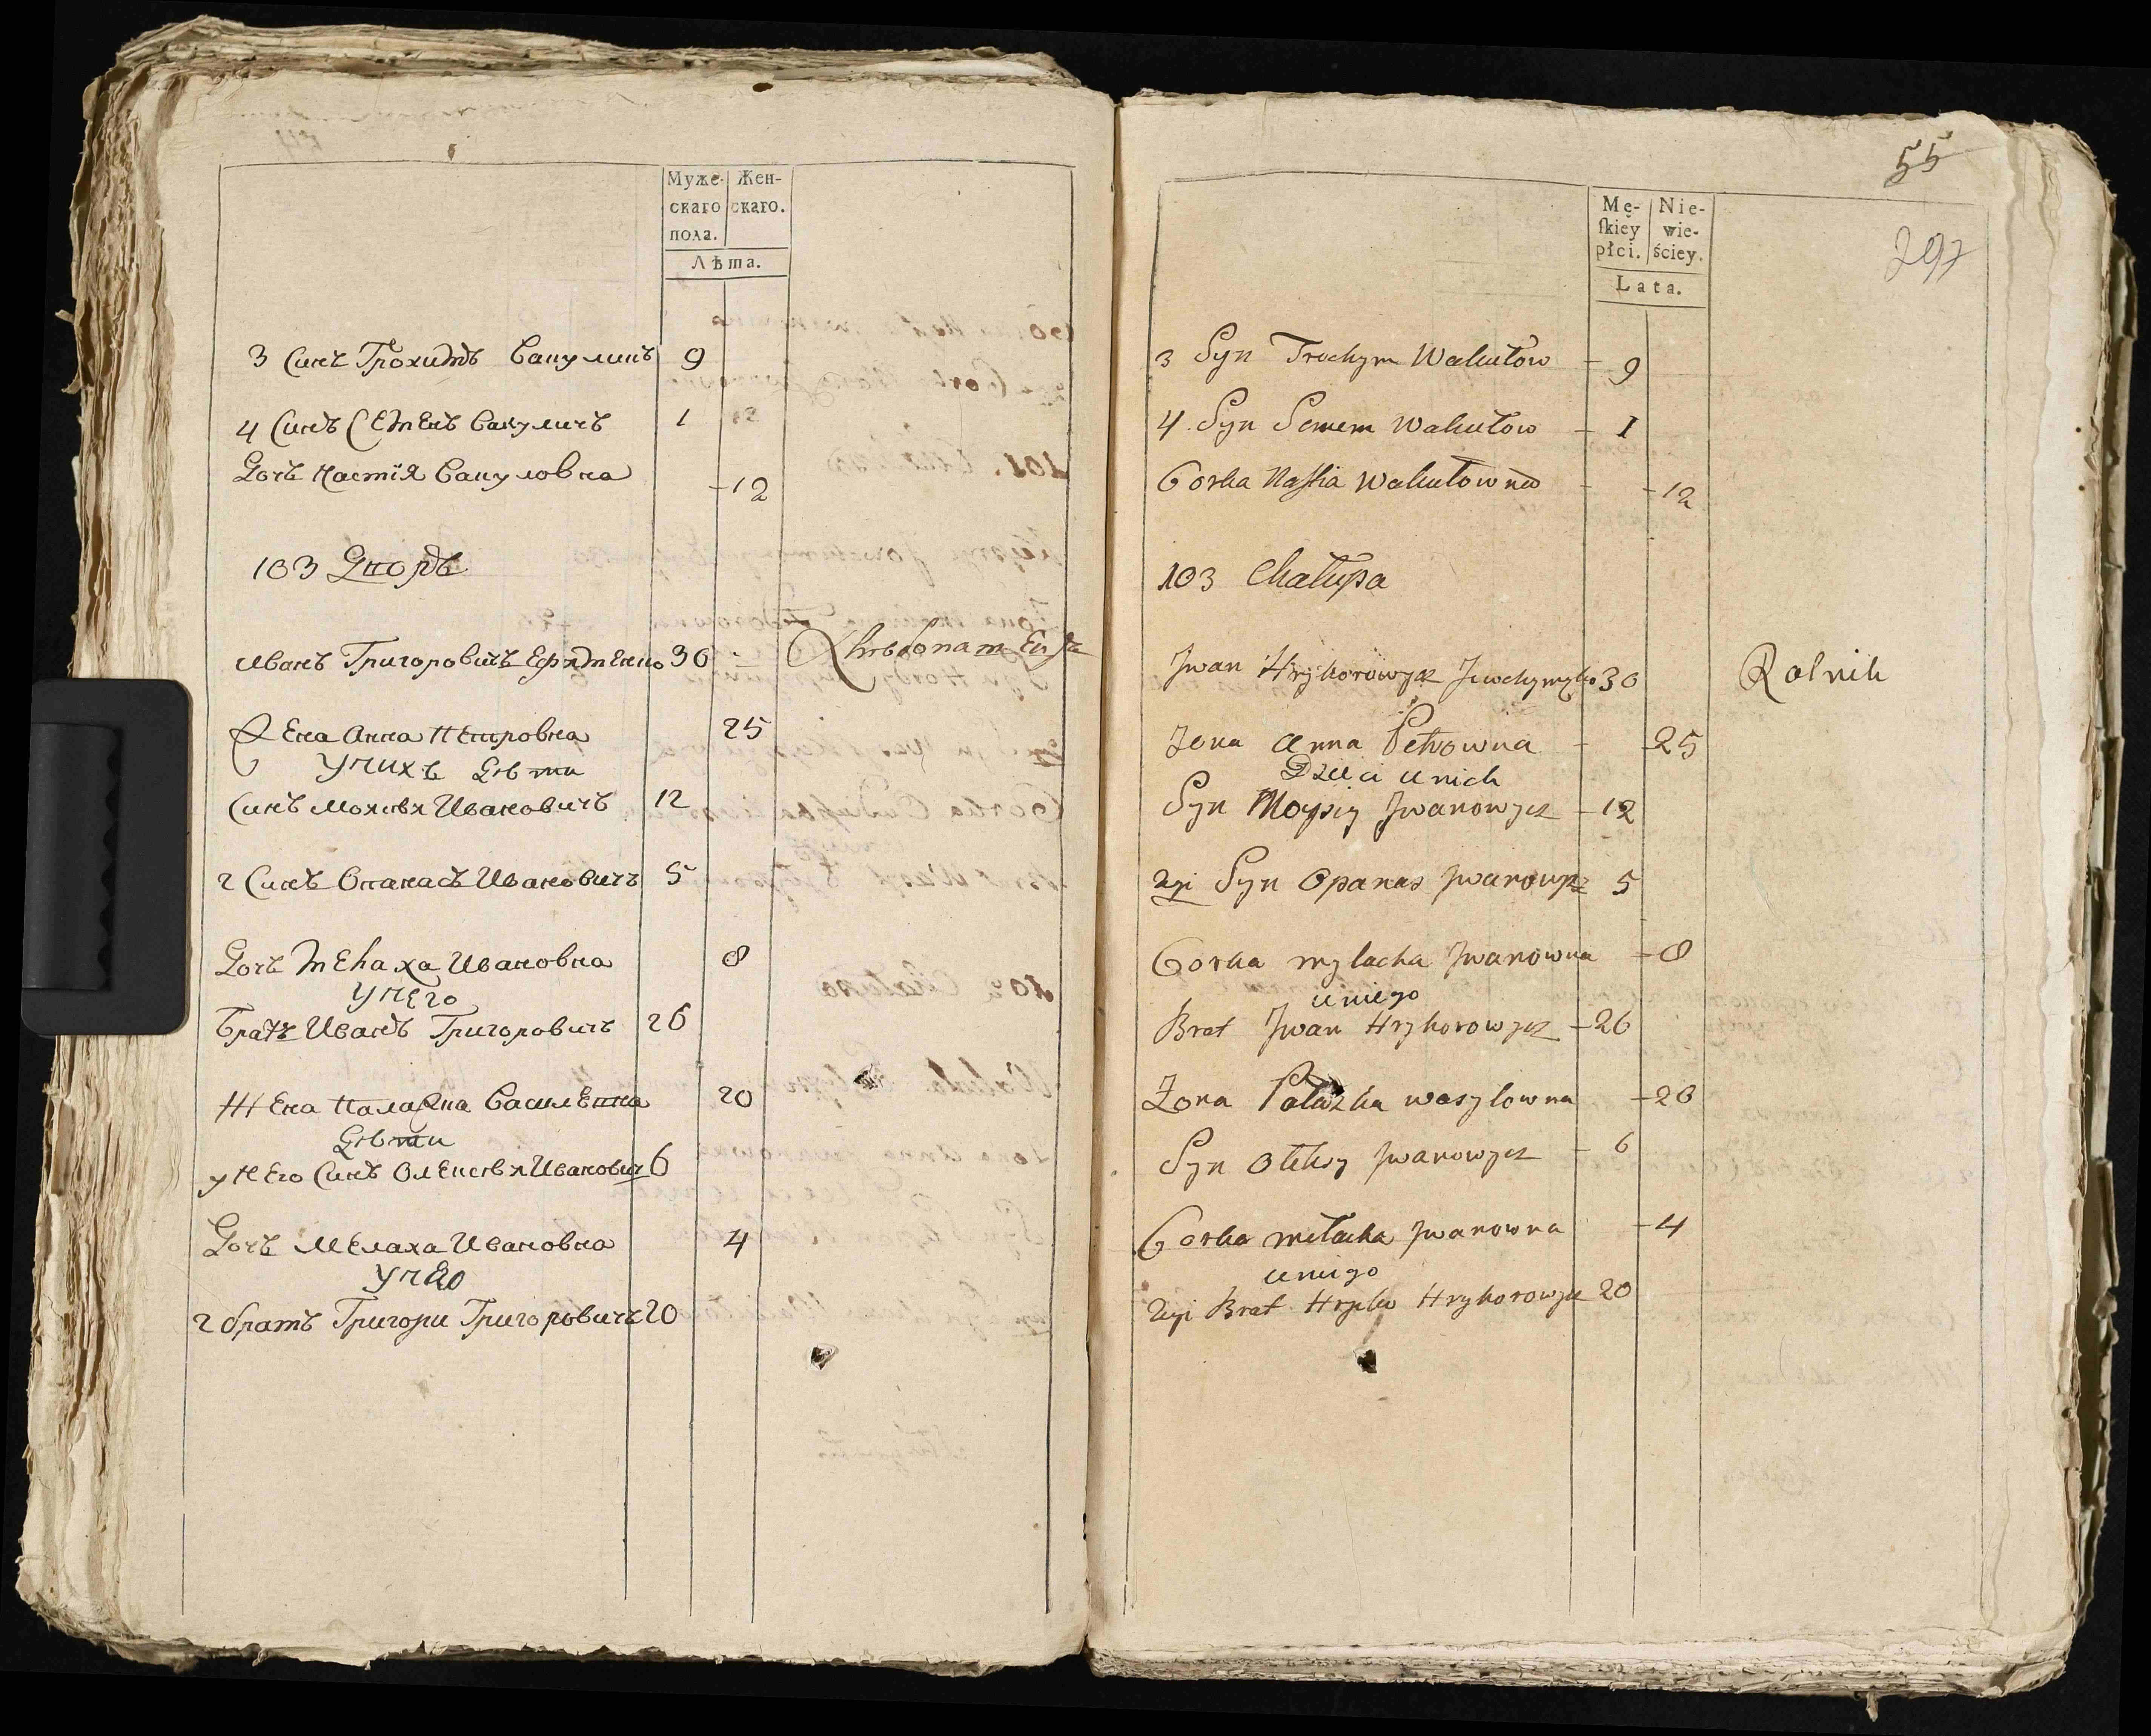 Муже-
скаго
пола.
Жен-
скаго.
Лѣта.
3 Синъ Трохимъ Вакуличъ 9
4 Синъ Семенъ Вакуличъ 1
Дочъ Настія Вакуловна -12
103 Дворъ
Иванъ Григоровичъ 30
Жена Анна Петровна 25
У нихъ Дѣти
Синъ Моисѣя Ивановичъ 12
2 Синъ Опанасъ Ивановичъ 5
Дочъ Мелаха Ивановна 8
У него
Братъ Иванъ Григоровичъ 26
Жена Палажка Василевна 20
Дѣти
у него Синъ Олексѣя Иванович 6
Дочъ Мелаха Ивановна 4
У него
2 братъ Григори Григоровичъ 20
55
297
Mę-
ſkiey
płci.
Nie-
wie-
ściey.
Lata.
3 Syn Trochym Wakułow - 9
4 Syn Semem Wakułow - 1
Corka Nastia Wakułowna - -12
103 Chałupa
Jwan Hryhorowycz 30 Rolnik
Zona Anna Petrowna - -25
Dzieci u nich
Syn Moysiy Jwanowycz -12
2gi Syn Opanas Jwanowycz 5
Corka mylacha Jwanowna -8
u niego
Brat Jwan Hryhorowycz -26
Żona Palażka wasylowna -20
Syn Oleksy Jwanowycz - 6
Corka melacha Jwanowna -4
u niego
2gi Brat Hryhor Hryhorowycz 20